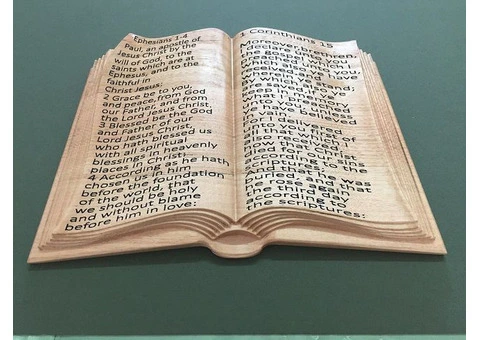 Ephesians 1-4
Paul, an apostle of
Jesus Christ by the
will of God, to the
saints which are at
Ephesus, and to the
faithful in
Christ Jesus:
2 Grace be to you,
and peace, from God
our Father, and from
the Lord Jesus Christ,
3 Blessed be the God
and Father of our
Lord Jesus Christ,
who hath blessed us
with all spiritual
blessings in heavenly
places in Christ:
4 According as he hath
chosen us in him
before the foundation
of the world, that
we should be holy
and without blame
before him in love:
1 Corinthians 15
Moreover, brethren,
declare unto you
the gospel which
preached unto you,
which also ye have
received, and
wherein ye
By which also ye
are saved, if ye
keep in memory
what I preached
unto you, unless
ye have believed
in vain.
For I delivered
unto you first of
all that which I
also received,
how that Christ
died for our sins
according to the
scriptures;
And that he was
buried, and that
he rose again
the third day
according to
the scriptures: